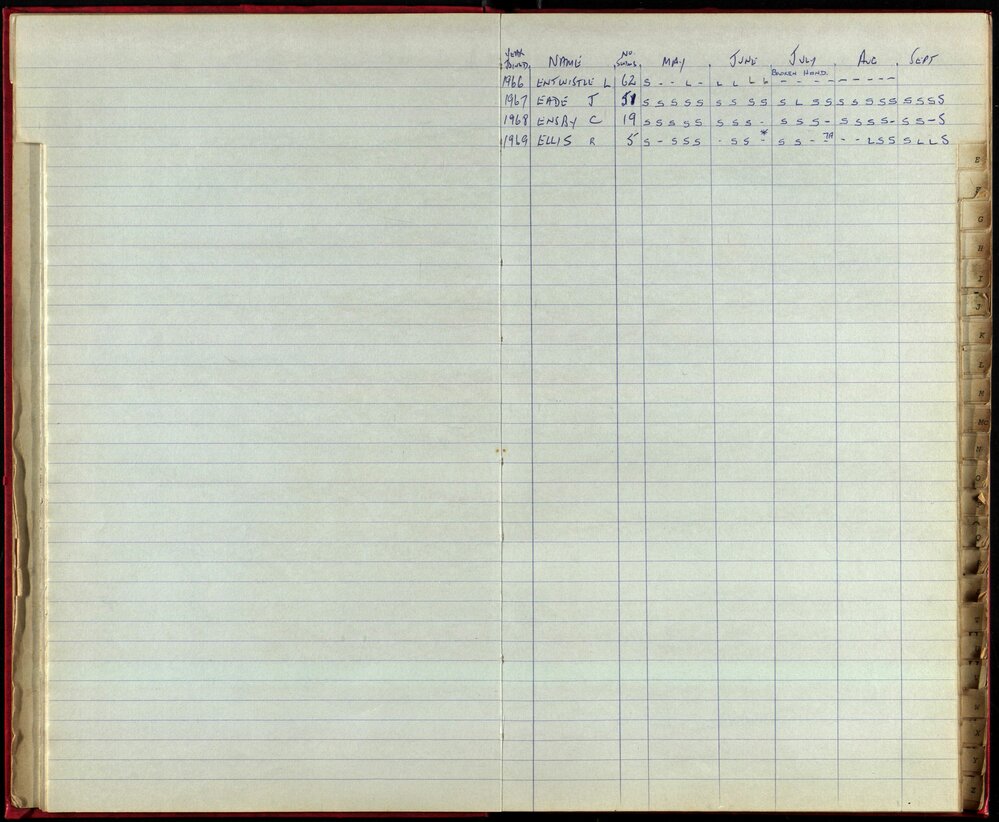 YEAR JOINED, NAME NO. SWIMS. MAY JUNE JULY AUG SEPT
BROKEN HAND.
1966 ENTWISTLE L 62 S - - L - L L L L - - - - - - - - -
1967 EADE J 51 S S S S S S S S S S L S S S S S S S S S S S
1968 ENSBY C 19 S S S S S S S S - S S S - S S S S - S S - S
1969 ELLIS R 5 S - S S S - S S * S S - - - - L S S S L L S
E
F
G
H
I
J
K
L
M
Mc
N
O
W
X
Y
Z